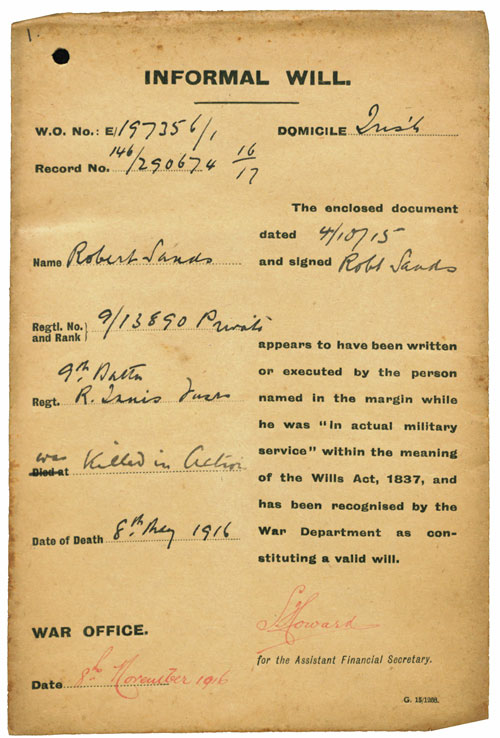 1.
INFORMAL WILL.
W.O. No.: E/197356/1
DOMICILE Irish
Record No. 146/290674 16/17
The enclosed document
dated 4/10/15
and signed Robt Sands
Name Robert Sands
Regtl. No. and Rank} 9/13890 Private
9th Battn
Regt. R. Innis Fusrs
was
Died at Killed in Action
Date of Death 8th May 1916
appears to have been written
or executed by the person
named in the margin while
he was "in actual military
service" within the meaning
of the Wills Act, 1837, and
has been recognised by the
War Department as con-
stituting a valid will.
WAR OFFICE.
Date 8th November 1916
Howard
for the Assistant Financial Secretary.
G. 15/1288.